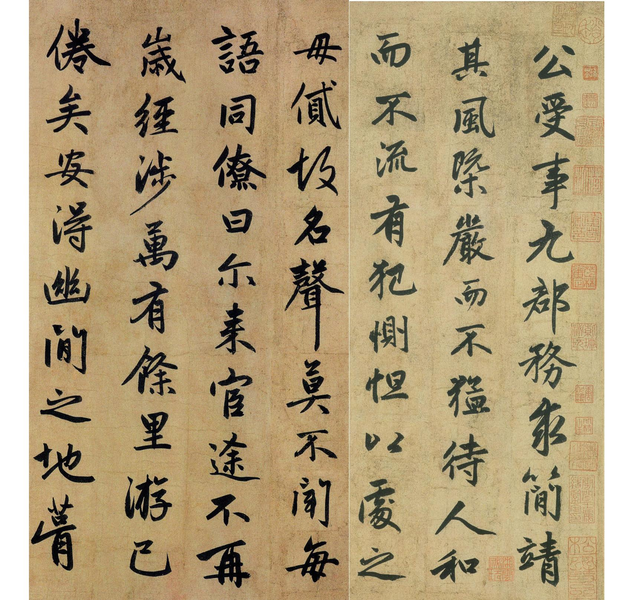 公受事九郡務求簡靖
其風槩嚴而不猛待人和
而不流有犯惻怛以處之
毋貸故名聲莫不聞每
語同僚曰尔来官途不再
歲經涉萬有餘里游已
倦矣安得幽閒之地